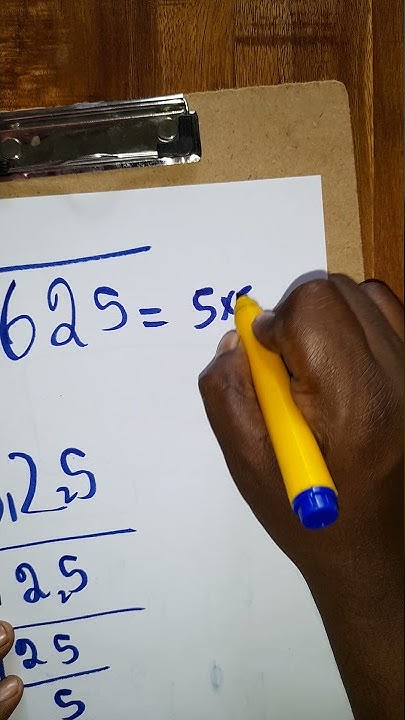 625 = 5x5
,25
25
25
5